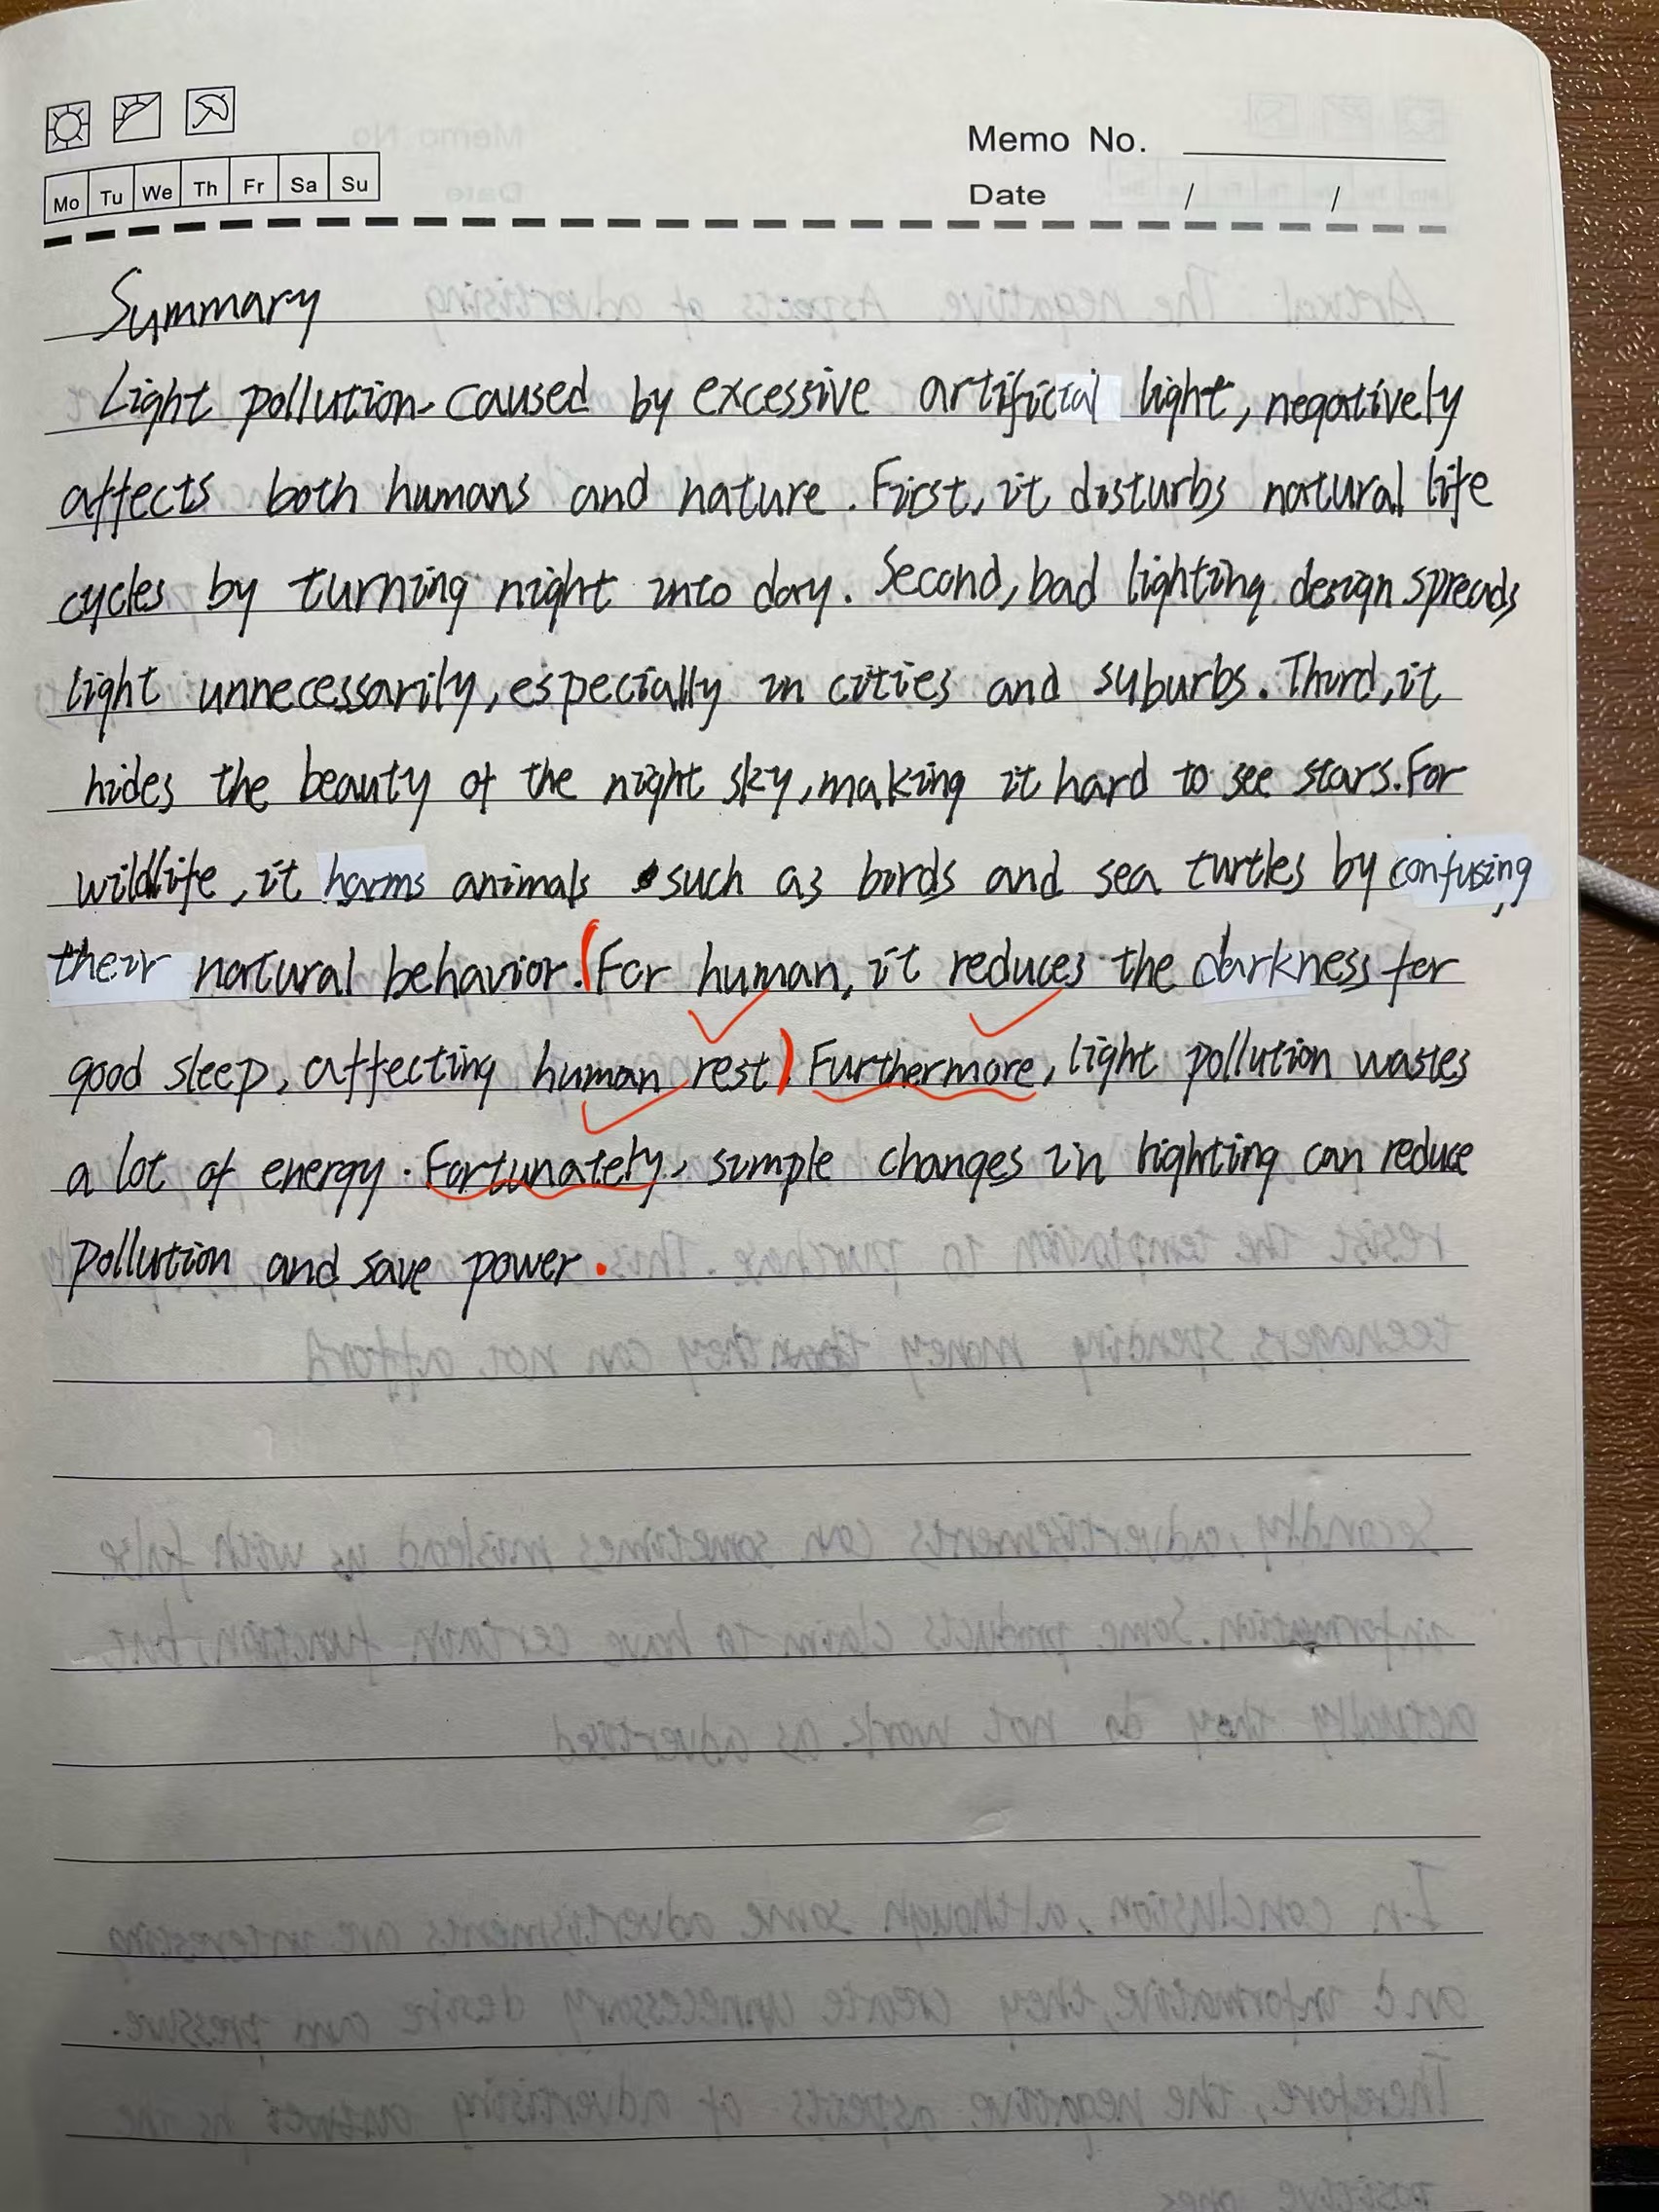 Memo No.
Mo Tu We Th Fr Sa Su
Date / /
Summary
Light pollution-caused by excessive artificial light, negatively
affects both humans and nature. First, it disturbs natural life
cycles by turning night into day. Second, bad lighting design spreads
light unnecessarily, especially in cities and suburbs. Third, it
hides the beauty of the night sky, making it hard to see stars. For
wildlife, it harms animals such as birds and sea turtles by confusing
their natural behavior. (For human, it reduces the darkness for
good sleep, affecting human rest) Furthermore, light pollution wastes
a lot of energy. Fortunately, simple changes in lighting can reduce
pollution and save power.